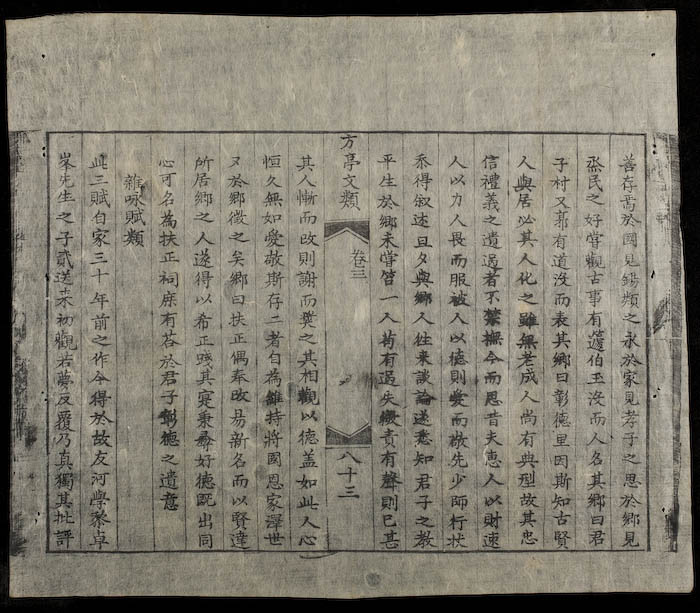 善存焉於國見錫類之永於家見孝子之思於鄉見
烝民之好嘗觀古事有蘧伯玉沒而人名其鄉曰君
子村又郭有道沒而表其鄉曰彰德里因斯知古賢
人與居必其人化之雖無老成人尚有典型故其忠
信禮義之遺過者不禁撫今而思昔夫惠人以財速
人以力人畏而服被人以德則愛而敬先少師行狀
忝得叙述旦夕與鄉人往來談論遂悉知君子之教
平生於鄉未嘗笞一人苟有過失繳責有聲則已甚
方亭文類
卷三
八十三
其人慚而改則謝而獎之其相觀以德盖如此人心
恒久無如愛敬斯存二者自為維持將國恩家澤世
又於鄉徵之矣鄉曰扶正偶奉改易新名而以賢達
所居鄉之人遂得以希正踐其寔秉彝好德既出同
心可名為扶正祠庶有荅於君子彰德之遺意
雜咏賦類
此三賦自家三十年前之作今得於故友河學黎卓
峯先生之子貳送來初觀若夢反覆乃真獨其批評